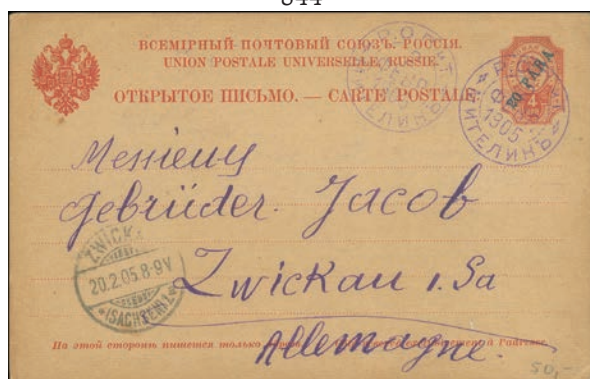 344
ВСЕМІРНЫЙ ПОЧТОВЫЙ СОЮЗЪ. РОССІЯ.
UNION POSTALE UNIVERSELLE. RUSSIE.
ОТКРЫТОЕ ПИСЬМО. — CARTE POSTALE
20 PARA
4
1905
МИТЕЛИНЪ
Messieurs
Gebrüder. Jacob
ZWICK
20.2.05.8-9V
(SACHSEN) 1
Zwickau i. Sa
Allemagne.
На этой сторонѣ пишется только
l'adresse
50,-